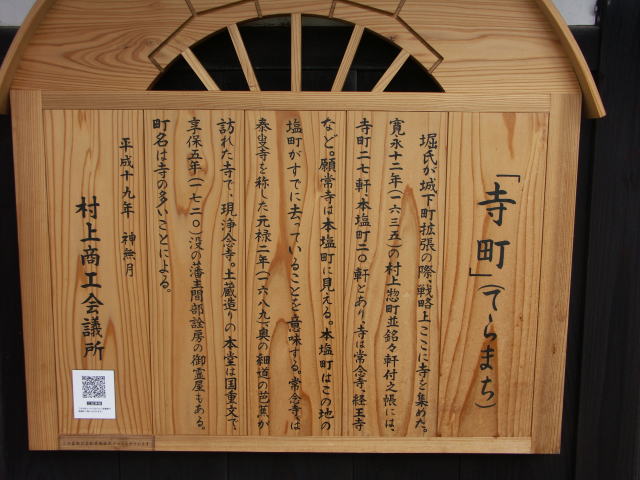 「寺町」（てらまち）
堀氏が城下町拡張の際、戦略上ここに寺を集めた。
寛永十二年（一六三五）の村上惣町並銘々軒付之帳には、
寺町二七軒、本塩町二〇軒とあり、寺は常念寺、経王寺
など。願常寺は本塩町に見える。本塩町はこの地の
塩町がすでに去っていることを意味する。常念寺は
泰叟寺を称した元禄二年（一六八九）、奥の細道の芭蕉が
訪れた寺で、現浄念寺。土蔵造りの本堂は国重文で、
享保五年（一七二〇）没の藩主間部詮房の御霊屋もある。
町名は寺の多いことによる。
平成十九年 神無月
村上商工会議所